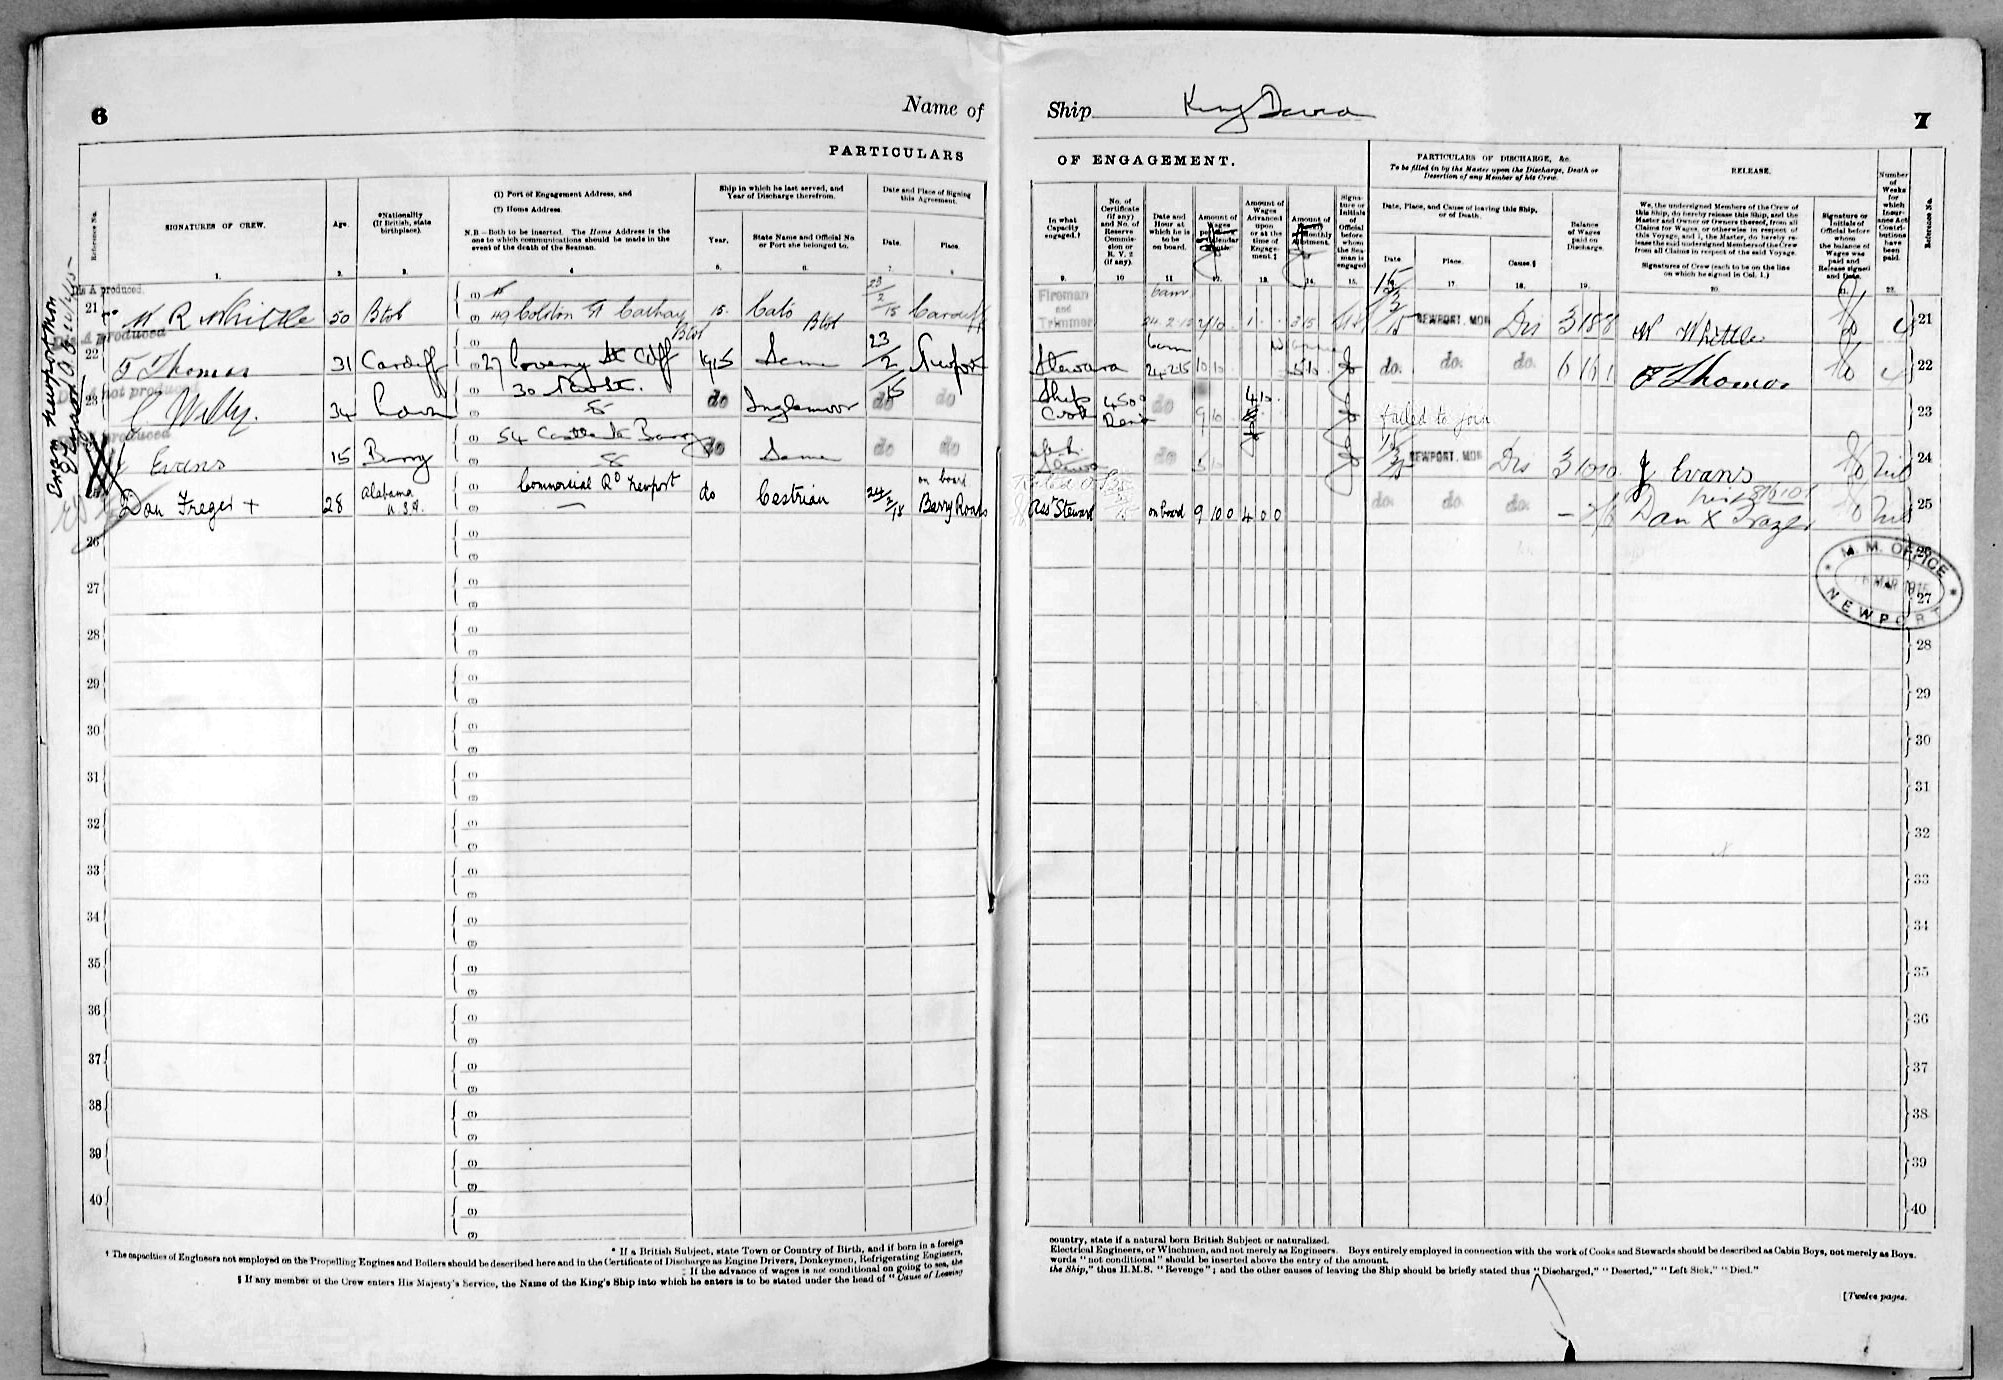 6
Name of
PARTICULARS
Reference No.
SIGNATURES OF CREW.
Age.
*Nationality
(If British, state
birthplace).
(1) Port of Engagement Address, and
(2) Home Address.
N.B.—Both to be inserted. The Home Address is the
one to which communications should be made in the
event of the death of the Seaman.
Ship in which he last served, and
Year of Discharge therefrom.
Year.
State Name and Official No.
or Port she belonged to.
Date and Place of Signing
this Agreement.
Date.
Place.
1. 2. 3. 4 5. 6. 7. 8
21 W R Whittle 50 Btol (1)
(2) 49 Colston St Cathay 15. Cato Btol 23/2/15 Cardiff
22 F Thomas 31 Cardiff 27 Coveny St Cdff 1915 Same 23/2/15 Newport
23 34 do Inglemoor do do
24 Evans 15 Barry 54 Castle St Barry do Same do do
25 Dan Freger + 28 Alabama U.S.A. Commercial Rd Newport do Cestrian 24/2/15 on board Barry Roads
26
27
28
29
30
31
32
33
34
35
36
37
38
39
40
* If a British Subject, state Town or Country of Birth, and if born in a foreign
† The capacities of Engineers not employed on the Propelling Engines and Boilers should be described here and in the Certificate of Discharge as Engine Drivers, Donkeymen, Refrigerating Engineers,
‡ If the advance of wages is not conditional on going to sea, the
§ If any member of the Crew enters His Majesty's Service, the Name of the King's Ship into which he enters is to be stated under the head of "Cause of Leaving
Ship King David
7
OF ENGAGEMENT.
PARTICULARS OF DISCHARGE, &c.
To be filled in by the Master upon the Discharge, Death or
Desertion of any Member of his Crew.
RELEASE.
In what
Capacity
engaged.†
No. of
Certificate
(if any)
and No. of
Reserve
Commis-
sion or
R. V. 2
(if any).
Date and
Hour at
which he is
to be
on board.
Amount of
Wages
Amount of
Wages
Advanced
upon
or at the
time of
Engage-
ment.‡
Amount of
Monthly
Allotment.
Signa-
ture or
Initials
of
Official
before
whom
the Sea-
man is
engaged
Date, Place, and Cause of leaving this Ship,
or of Death.
Date
Place.
Cause.§
Balance
of Wages
paid on
Discharge.
We, the undersigned Members of the Crew of
this Ship, do hereby release this Ship, and the
Master and Owner or Owners thereof, from all
Claims for Wages, or otherwise in respect of
this Voyage, and I, the Master, do hereby re-
lease the said undersigned Members of the Crew
from all Claims in respect of the said Voyage.
Signatures of Crew (each to be on the line
on which he signed in Col. 1.)
Signature or
Initials of
Official before
whom
the balance of
Wages was
paid and
Release signed
and Date.
Number
of
Weeks
for
which
Insur-
ance Act
Contri-
butions
have
been
paid.
Reference No.
9. 10 11 12. 13. 14. 15. 16. 17. 18. 19. 20. 21. 22.
Fireman and Trimmer 6am 24.2.15 NEWPORT. MON Dis 3 18 8 W Whittle 4 21
Steward 6am 24 2 15 10 10 5 10 do. do. do. 6 16 1 F Thomas 4 22
Ship Cook 450 do 9 10 4 10 failed to join 23
do 5 10 NEWPORT. MON Dis 3 10 10 J Evans Nil 24
Asst Steward on board 9 10 0 4 0 0 do. do. do. Dan X Nil 25
M. M. OFFICE
MAR 1915
NEWPORT
26
27
28
29
30
31
32
33
34
35
36
37
38
39
40
country, state if a natural born British Subject or naturalized.
Electrical Engineers, or Winchmen, and not merely as Engineers. Boys entirely employed in connection with the work of Cooks and Stewards should be described as Cabin Boys, not merely as Boys.
words "not conditional" should be inserted above the entry of the amount.
the Ship," thus H.M.S. "Revenge"; and the other causes of leaving the Ship should be briefly stated thus "Discharged," "Deserted," "Left Sick," "Died."
[Twelve pages.